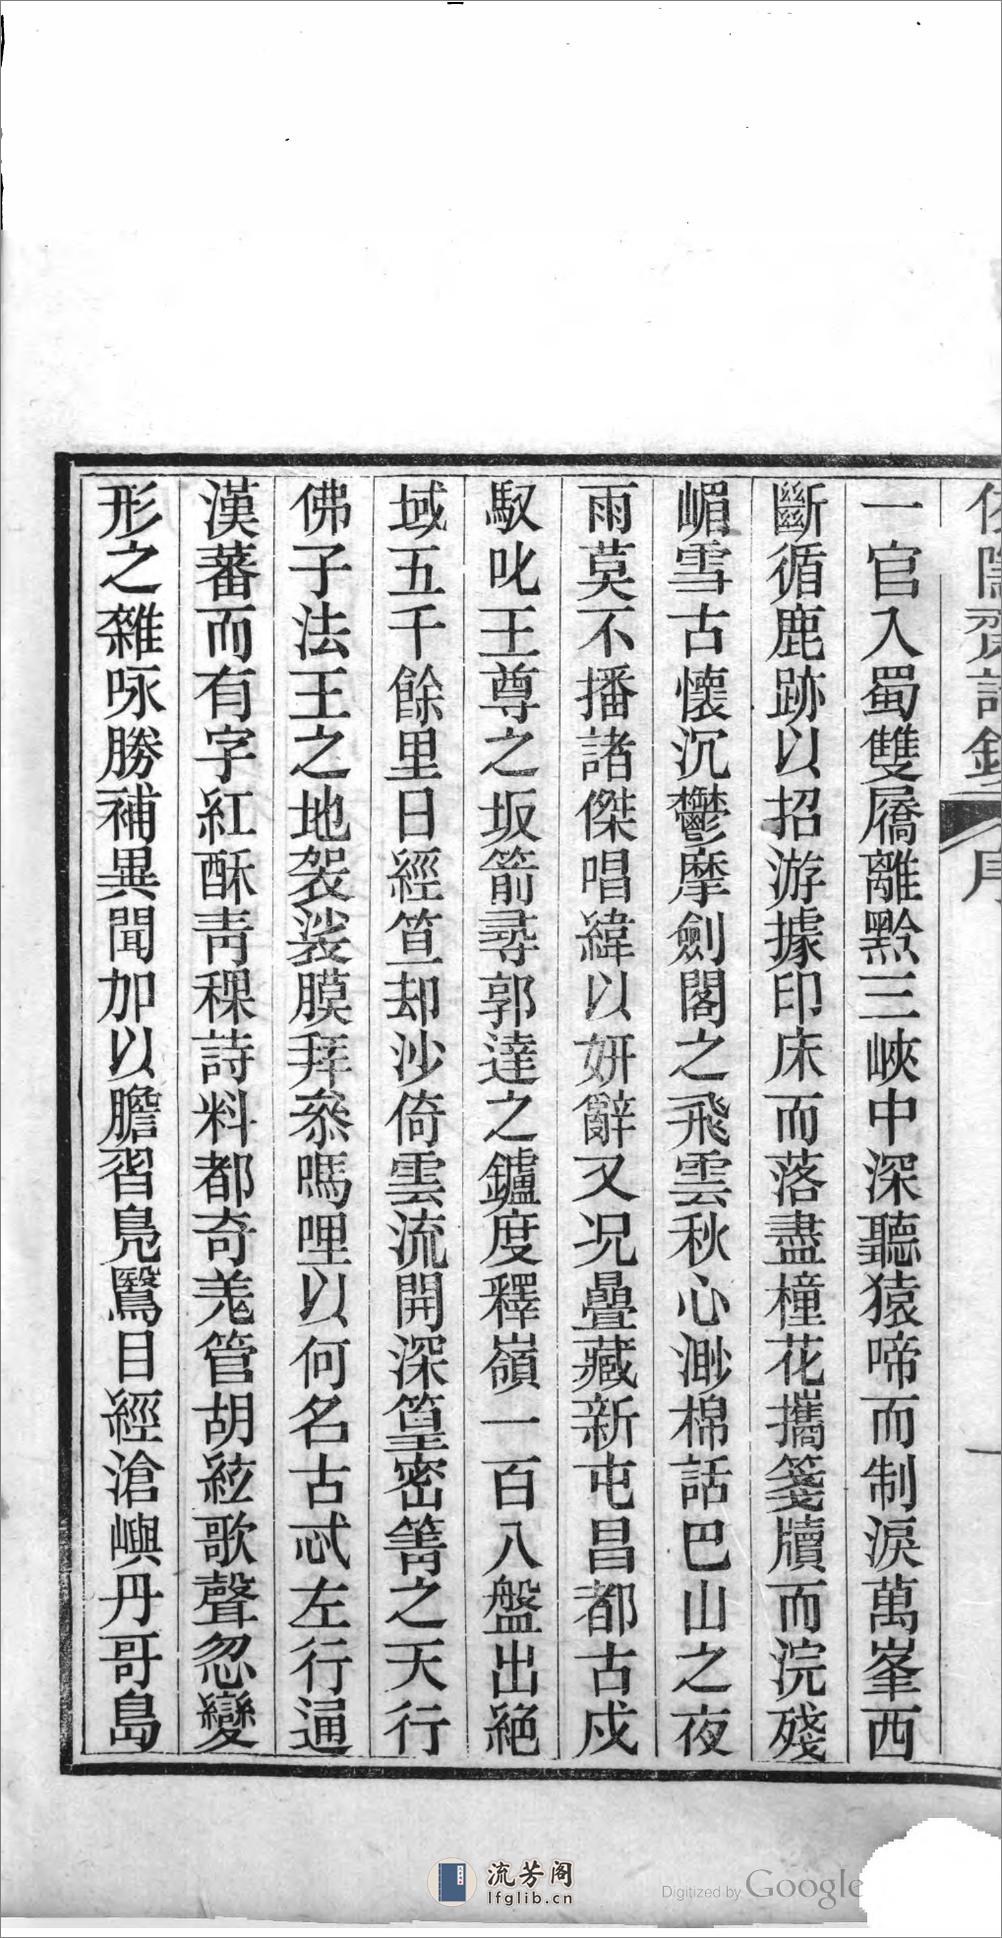 詩鈔 序 一
一官入蜀雙屩離黔三峽中深聽猿啼而制淚萬峯西
斷循鹿跡以招游據印床而落盡橦花攜箋牘而浣殘
嵋雪古懷沉鬱摩劍閣之飛雲秋心渺棉話巴山之夜
雨莫不播諸傑唱緯以妍辭又况疊藏新屯昌都古戍
馭叱王尊之坂箭尋郭達之鑪度釋嶺一百八盤出絕
域五千餘里日經笪却沙倚雲流開深篁密箐之天行
佛子法王之地袈裟膜拜叅嗎哩以何名古忒左行通
漢蕃而有字紅酥靑稞詩料都奇羗管胡絃歌聲忽變
形之雜咏勝補異聞加以膽習鳧鷖目經滄嶼丹哥島
流芳阁
lfglib.cn
Digitized by Google